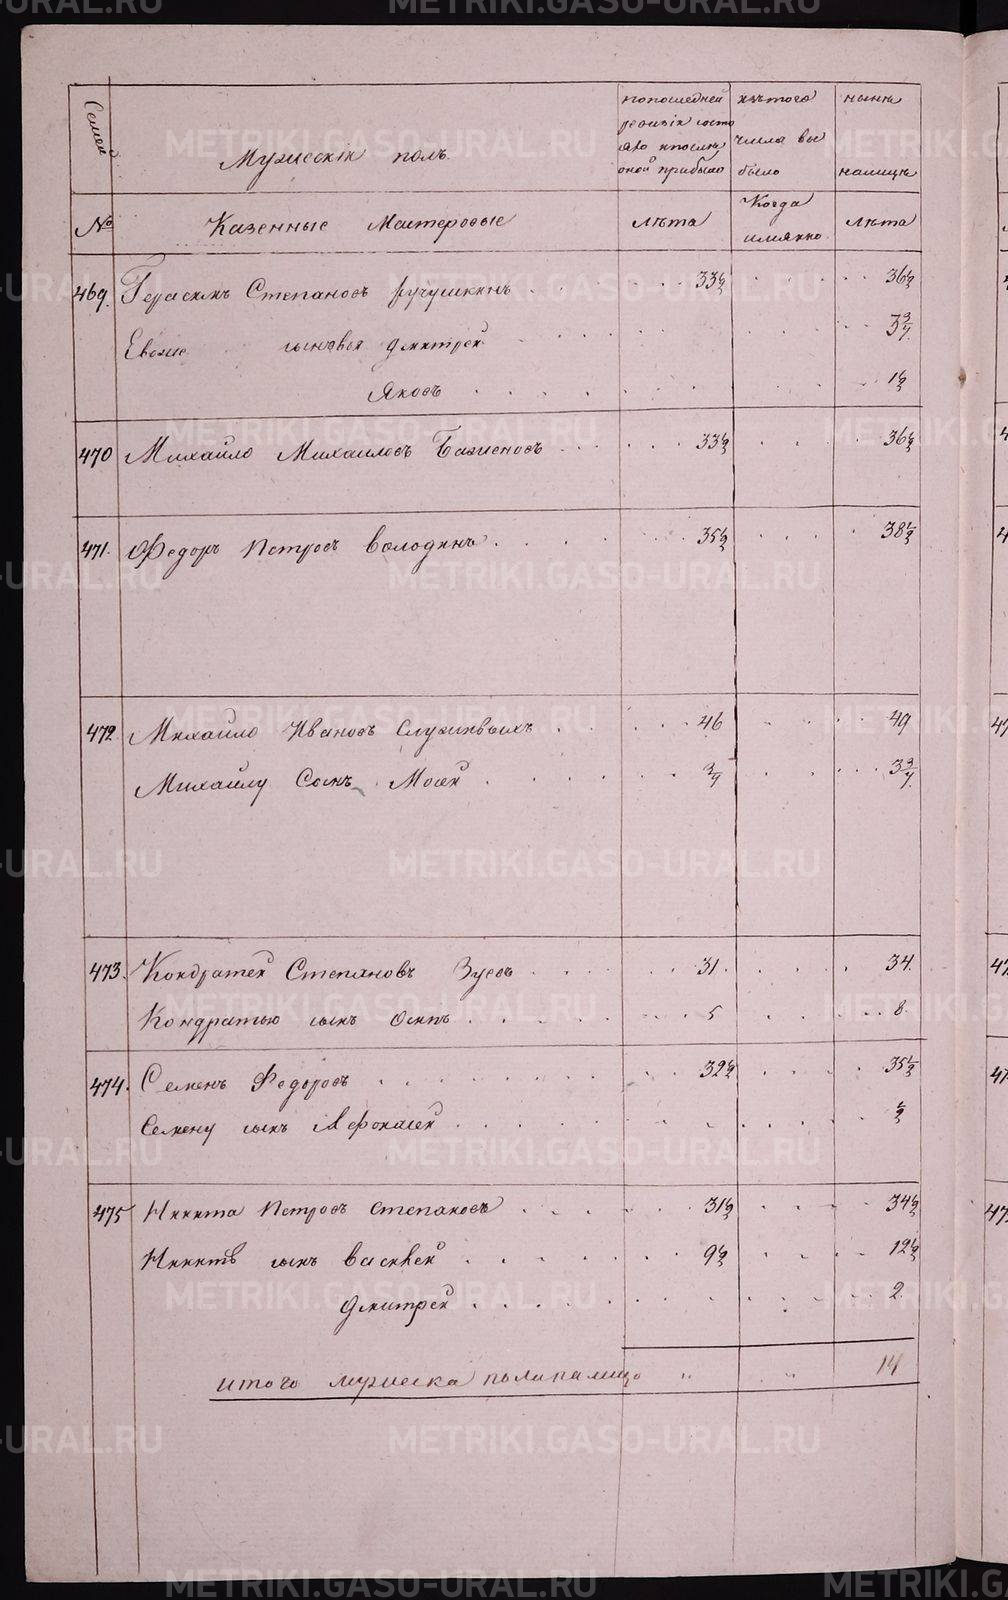 Семей
Мужескiй полъ.
попоследней
ревизiи состо
яло ипослѣ
оной прибыло
изътого
числа вы
было
нынѣ
налицѣ
№
Казенные Мастеровые
лѣта
Когда
имянно
лѣта
469. Герасимъ Степановъ 33½ 36½
Евоже сыновья Дмитрей 3¾
Яковъ 1½
470 Михайло Михаиловъ Баженовъ 33½ 36½
471. Федоръ Петровъ Володинъ 35½ 38½
472 Михайло Ивановъ Служивыхъ 46 49
Михайлу Сынъ Мосей ¾ 3¾
473. Кондратей Степановъ Зуевъ 31 34
Кондратью сынъ Осипъ 5 8
474. Семенъ Федоровъ 32½ 35½
Семену сынъ Афонасей ½
475 Никита Петровъ Степановъ 31½ 34½
Никитѣ сынъ Василей 9½ 12½
Дмитрей 2
итого мужеска пола налицо " " 14
METRIKI.GASO-URAL.RU